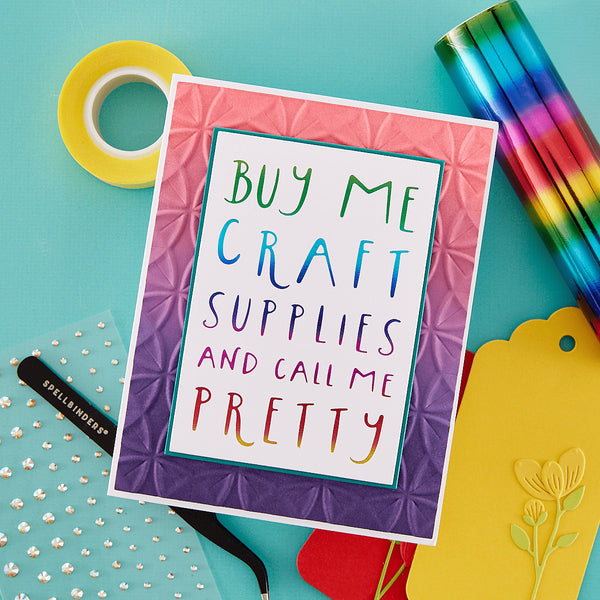 BUY ME
CRAFT
SUPPLIES
AND CALL ME
PRETTY
SPELLBINDERS®